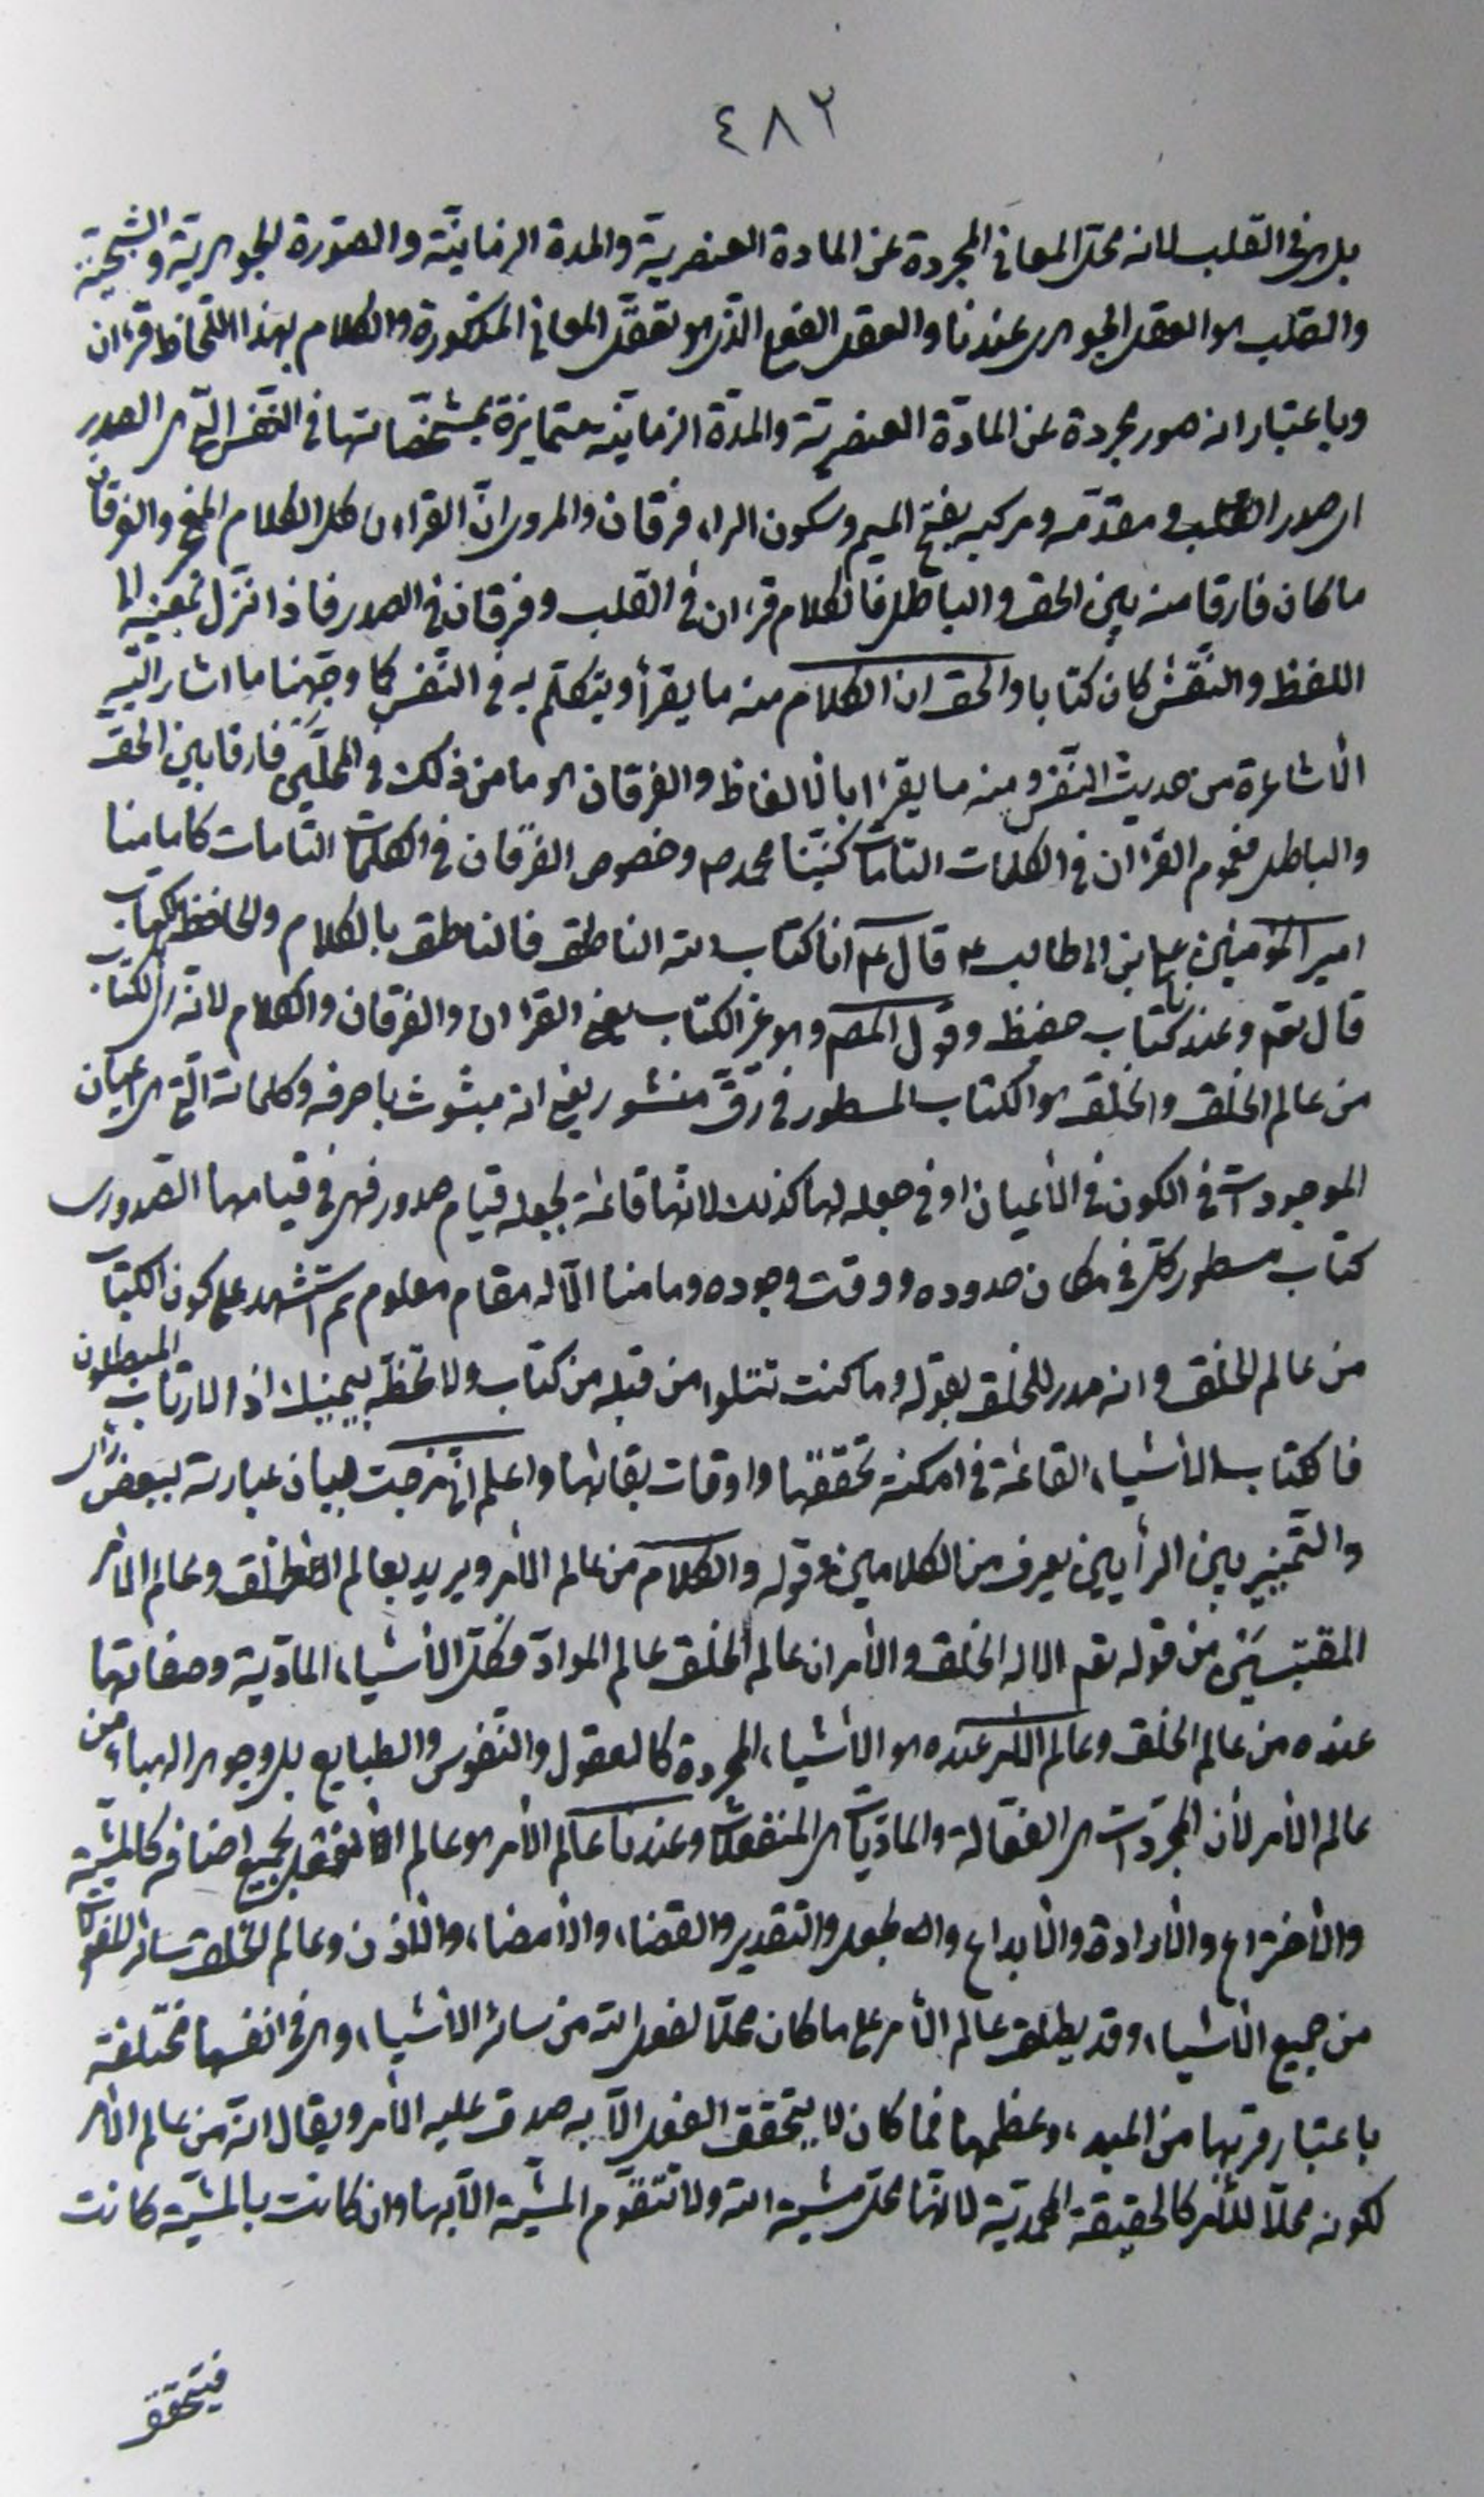 ٤٨٢
بل هى فى القلب لانه محل المعانى المجردة عن المادة العنصرية والمدة الزمانيّة والصّورة الجوهرية والشبحيّة
والقلب هو العقل الجوهرى عندنا والعقل الفعلى الّذى هو تعقّل المعانى المذكورة والكلام بهذا اللّحاظ قرءان
وباعتبار انه صور مجردة عن المادّة العنصريّة والمدّة الزمانيّة متمايزة بمشخّصاتها فى النّفس الّتى هى الصدر
اى صدر القلب ومقدّمه ومركبه بفتح الميم وسكون الراء فرقان والمروى انّ القرءان كل الكلام المجمع والفرقان
ما كان فارقا منه بين الحق والباطل فالكلام قرءان فى القلب وفرقان فى الصدر فاذا نزّل بمعنييه الى
اللفظ والنّقش كان كتابا والحق ان الكلام منه ما يقرأ ويتكلّم به فى النّفس كما وجّهنا ما اشار اليه
الأشاعرة من حديث النّفس ومنه ما يقرءا بالألفاظ والفرقان هو ما من ذلك فى المحلَّين فارقا بين الحقّ
والباطل فعموم القرءان فى الكلمات التامّات كنبيّنا محمد ص وخصوص الفرقان فى الكلمات التامات كامامنا
امير المؤمنين على بن ابى طالب ع قال ع انا كتاب الله الناطق فالناطق بالكلام والحافظ كتاب
قال تعه وعندنا كتاب حفيظ وقول المصـ وهو غير الكتاب يعنى القرءان والفرقان والكلام لانّه اى الكتاب
من عالم الخلق والخلق هو الكتاب المسطور فى رقّ منشور يعنى انه مبثوث باحرفه وكلماته الّتى هى اعيان
الموجودات فى الكون فى الأعيان او فى جعله لها كذلك لانّها قائمة بجعله قيام صدور فهى فى قيامها الصّدورى
كتاب مسطور كلّ فى مكان حدوده ووقت وجوده وما منا الّا له مقام معلوم ثم استشهد على كون الكتاب
من عالم الخلق وانه مدرك للخلق بقوله وما كنت تتلوا من قبله من كتاب ولا تخطّه بيمينك اذا لارتاب المبطلون
فالكتاب الأشياء القائمة فى امكنة تحققها واوقات بقائها واعلم انّى مزجت بيان عبارته ببعض رأيى
والتّمييز بين الرأيين يعرف من الكلامين وقوله والكلام من عالم الأمر ويريد بعالم الخلق وعالم الأمر
المقتبسَيْن من قوله تعه الا له الخلق والأمر ان عالم الخلق عالم الموادّ فكلّ الأشياء المادّية وصفاتها
عنده من عالم الخلق وعالم الأمر عنده هو الأشياء المجردة كالعقول والنّفوس والطبايع بل وجوهر الهباء من
عالم الأمر لأن المجرّدات هى الفعّالة والمادّيات هى المنفعلات وعندنا عالم الأمر هو عالم الفعل بجميع اصنافه كالمشيّة
والأختراع والأرادة والأبداع والجعل والتقدير والقضاء والأمضاء والأذن وعالم الخلق سائر المفعولات
من جميع الأشياء وقد يطلق عالم الأمر على ما كان محلّا لفعل الله من سائر الأشياء وهى فى انفسها مختلفة
باعتبار قربها من المبدء وعظمها فما كان لا يتحقق الفعل الّا به صدق عليه الأمر ويقال انّه من عالم الأمر
لكونه محلّا للأمر كالحقيقة المحمديّة لانّها محلّ مشيّة الله ولا تتقوّم المشيّة الّا بها وان كانت بالمشيّة كانت
فيتحقق